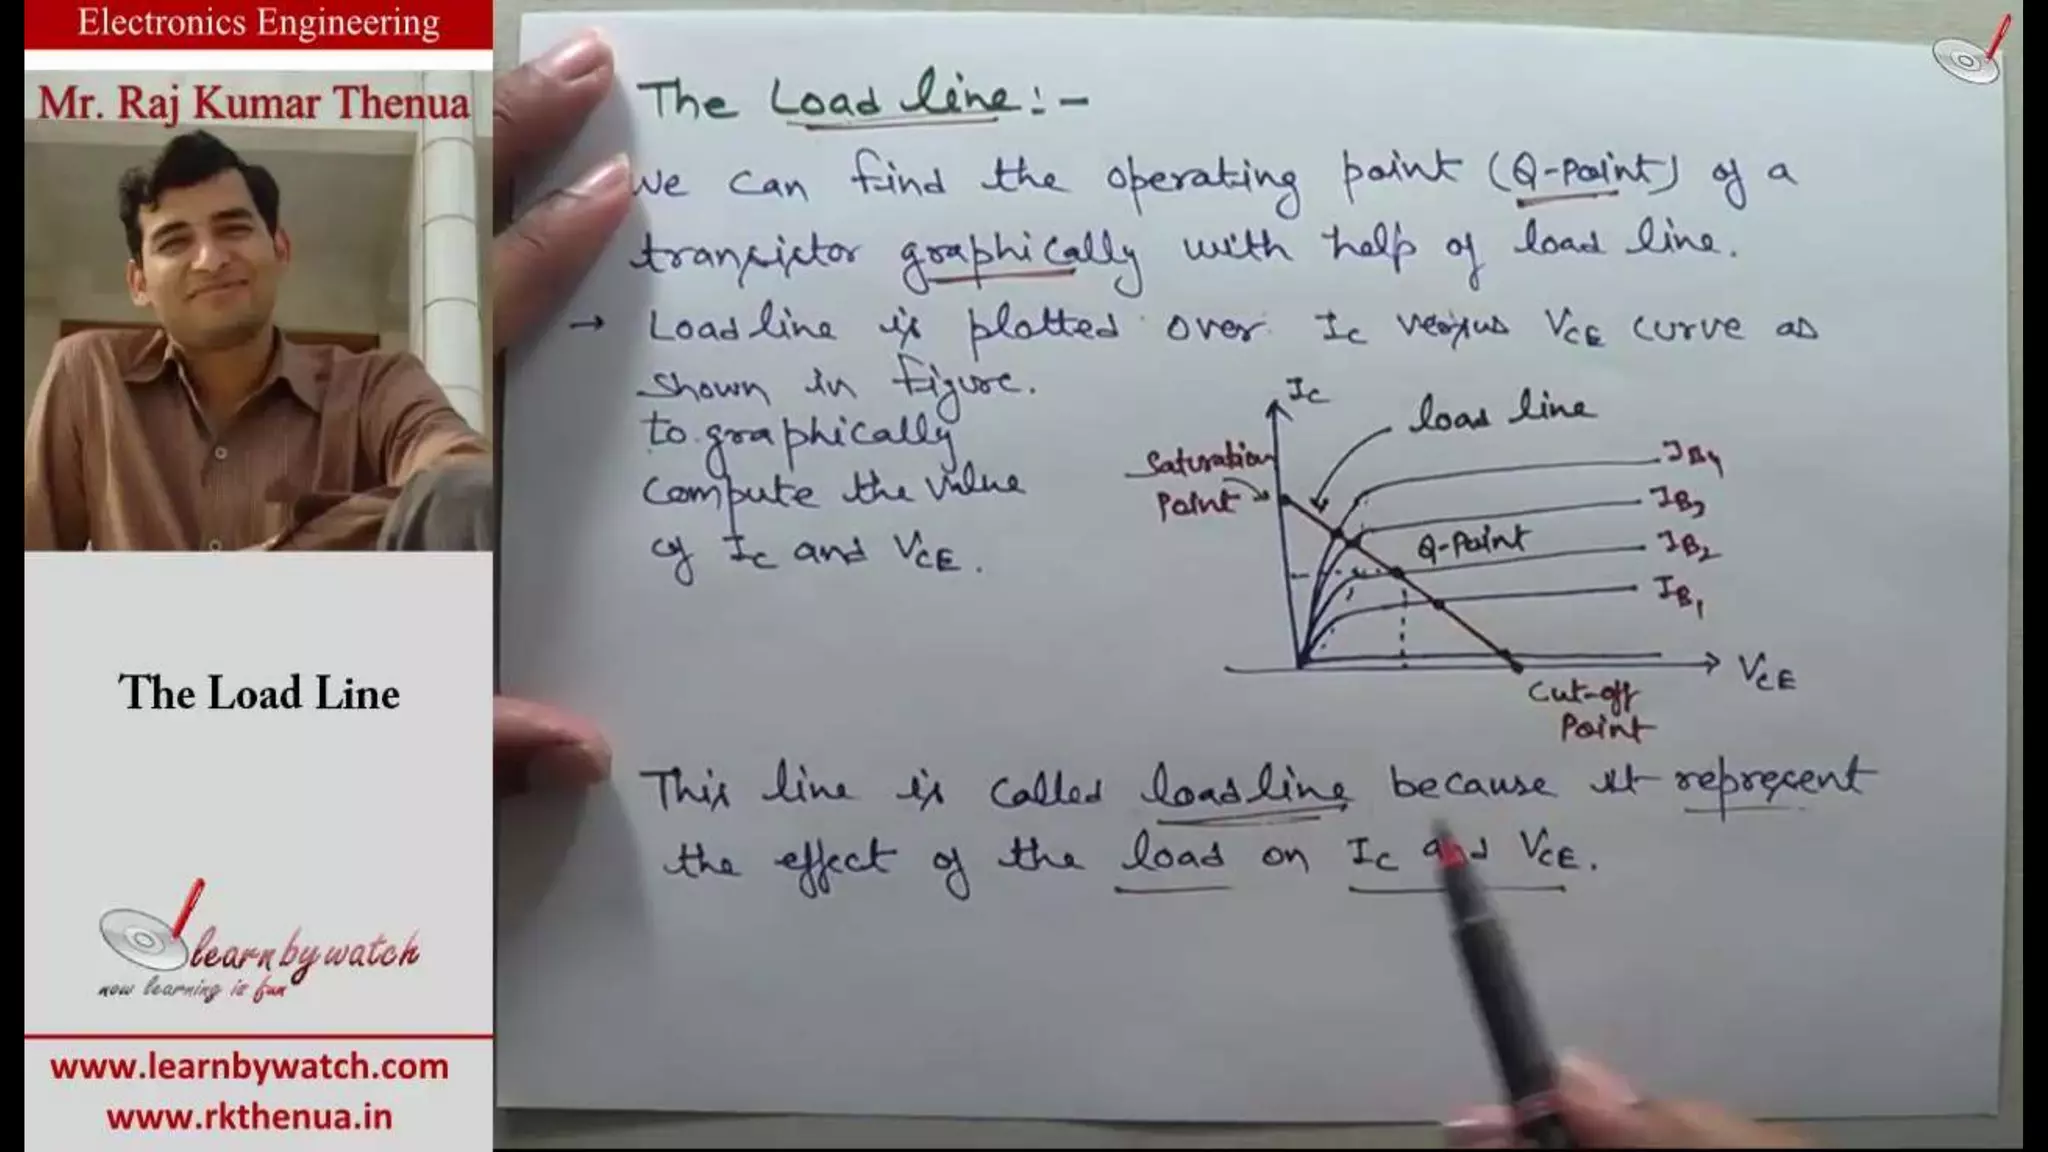 Electronics Engineering
Mr. Raj Kumar Thenua
The Load Line
learnbywatch
now learning is fun
www.learnbywatch.com
www.rkthenua.in
The Load line:-
We can find the operating point (Q-Point) of a
transistor graphically with help of load line.
→ Load line is plotted over IC versus VCE curve as
shown in figure.
to graphically
compute the value
of IC and VCE.
IC
load line
Saturation
Point
IB4
IB3
Q-Point
IB2
IB1
VCE
Cut-off
Point
This line is called loadline because it represent
the effect of the load on IC and VCE.